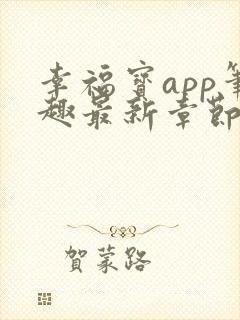 幸福寳app筆
趣最新章節
賀蒙路